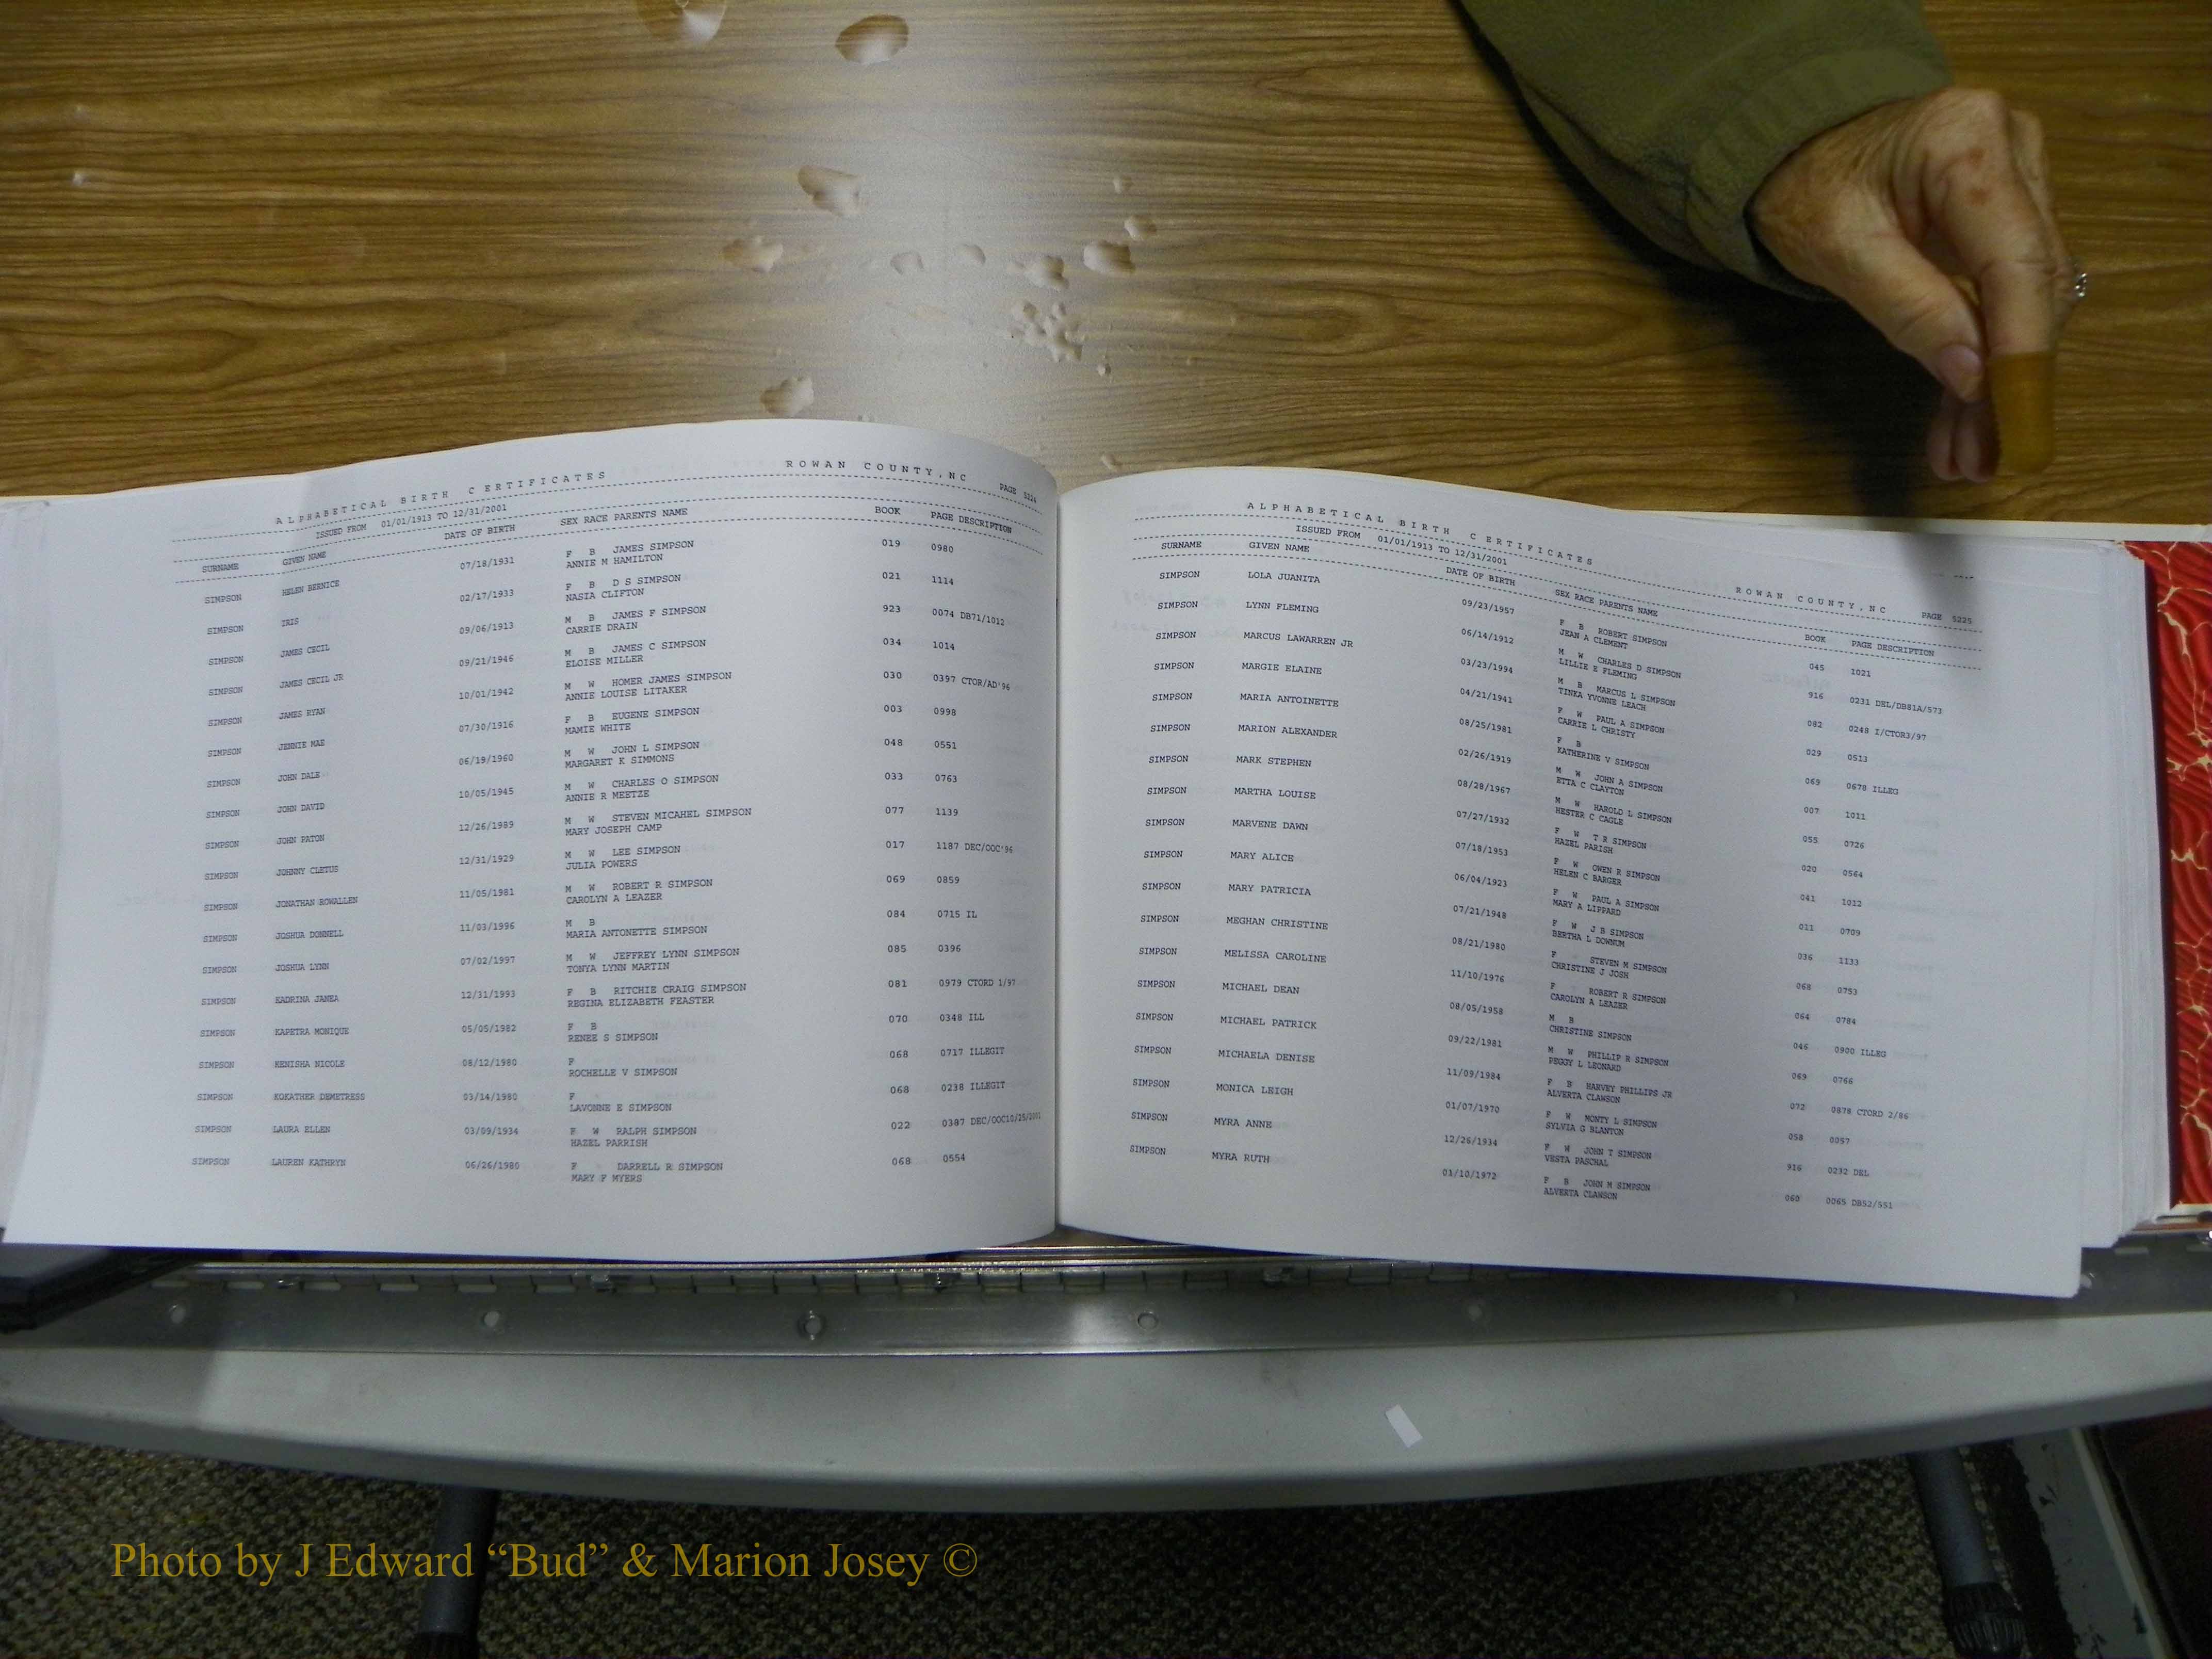 ALPHABETICAL BIRTH CERTIFICATES ROWAN COUNTY,NC PAGE 5224
ISSUED FROM 01/01/1913 TO 12/31/2001
SURNAME GIVEN NAME DATE OF BIRTH SEX RACE PARENTS NAME BOOK PAGE DESCRIPTION
SIMPSON HELEN BERNICE 07/18/1931 F B JAMES SIMPSON 019 0980
ANNIE M HAMILTON
SIMPSON IRIS 02/17/1933 F B D S SIMPSON 021 1114
NASIA CLIFTON
SIMPSON JAMES CECIL 09/06/1913 M B JAMES F SIMPSON 923 0074 DB71/1012
CARRIE DRAIN
SIMPSON JAMES CECIL JR 09/21/1946 M B JAMES C SIMPSON 034 1014
ELOISE MILLER
SIMPSON JAMES RYAN 10/01/1942 M W HOMER JAMES SIMPSON 030 0397 CTOR/AD'96
ANNIE LOUISE LITAKER
SIMPSON JENNIE MAE 07/30/1916 F B EUGENE SIMPSON 003 0998
MAMIE WHITE
SIMPSON JOHN DALE 06/19/1960 M W JOHN L SIMPSON 048 0551
MARGARET K SIMMONS
SIMPSON JOHN DAVID 10/05/1945 M W CHARLES O SIMPSON 033 0763
ANNIE R MEETZE
SIMPSON JOHN PATON 12/26/1989 M W STEVEN MICAHEL SIMPSON 077 1139
MARY JOSEPH CAMP
SIMPSON JOHNNY CLETUS 12/31/1929 M W LEE SIMPSON 017 1187 DEC/OOC'96
JULIA POWERS
SIMPSON JONATHAN ROWALLEN 11/05/1981 M W ROBERT R SIMPSON 069 0859
CAROLYN A LEAZER
SIMPSON JOSHUA DONNELL 11/03/1996 M B 084 0715 IL
MARIA ANTONETTE SIMPSON
SIMPSON JOSHUA LYNN 07/02/1997 M W JEFFREY LYNN SIMPSON 085 0396
TONYA LYNN MARTIN
SIMPSON KADRINA JANEA 12/31/1993 F B RITCHIE CRAIG SIMPSON 081 0979 CTORD 1/97
REGINA ELIZABETH FEASTER
SIMPSON KAPETRA MONIQUE 05/05/1982 F B 070 0348 ILL
RENEE S SIMPSON
SIMPSON KENISHA NICOLE 08/12/1980 F 068 0717 ILLEGIT
ROCHELLE V SIMPSON
SIMPSON KOKATHER DEMETRESS 03/14/1980 F 068 0238 ILLEGIT
LAVONNE E SIMPSON
SIMPSON LAURA ELLEN 03/09/1934 F W RALPH SIMPSON 022 0387 DEC/OOC10/25/2001
HAZEL PARRISH
SIMPSON LAUREN KATHRYN 06/26/1980 F DARRELL R SIMPSON 068 0554
MARY F MYERS
ALPHABETICAL BIRTH CERTIFICATES ROWAN COUNTY,NC PAGE 5225
ISSUED FROM 01/01/1913 TO 12/31/2001
SURNAME GIVEN NAME DATE OF BIRTH SEX RACE PARENTS NAME BOOK PAGE DESCRIPTION
SIMPSON LOLA JUANITA 09/23/1957 F B ROBERT SIMPSON 045 1021
JEAN A CLEMENT
SIMPSON LYNN FLEMING 06/14/1912 M W CHARLES D SIMPSON 916 0231 DEL/DB81A/573
LILLIE E FLEMING
SIMPSON MARCUS LAWARREN JR 03/23/1994 M B MARCUS L SIMPSON 082 0248 I/CTOR3/97
TINKA YVONNE LEACH
SIMPSON MARGIE ELAINE 04/21/1941 F W PAUL A SIMPSON 029 0513
CARRIE L CHRISTY
SIMPSON MARIA ANTOINETTE 08/25/1981 F B 069 0678 ILLEG
KATHERINE V SIMPSON
SIMPSON MARION ALEXANDER 02/26/1919 M W JOHN A SIMPSON 007 1011
ETTA C CLAYTON
SIMPSON MARK STEPHEN 08/28/1967 M W HAROLD L SIMPSON 055 0726
HESTER C CAGLE
SIMPSON MARTHA LOUISE 07/27/1932 F W T R SIMPSON 020 0564
HAZEL PARISH
SIMPSON MARVENE DAWN 07/18/1953 F W OWEN R SIMPSON 041 1012
HELEN C BARGER
SIMPSON MARY ALICE 06/04/1923 F W PAUL A SIMPSON 011 0709
MARY A LIPPARD
SIMPSON MARY PATRICIA 07/21/1948 F W J B SIMPSON 036 1133
BERTHA L DOWNUM
SIMPSON MEGHAN CHRISTINE 08/21/1980 F STEVEN M SIMPSON 068 0753
CHRISTINE J JOSH
SIMPSON MELISSA CAROLINE 11/10/1976 F ROBERT R SIMPSON 064 0784
CAROLYN A LEAZER
SIMPSON MICHAEL DEAN 08/05/1958 M B 046 0900 ILLEG
CHRISTINE SIMPSON
SIMPSON MICHAEL PATRICK 09/22/1981 M W PHILLIP R SIMPSON 069 0766
PEGGY L LEONARD
SIMPSON MICHAELA DENISE 11/09/1984 F B HARVEY PHILLIPS JR 072 0878 CTORD 2/86
ALVERTA CLAWSON
SIMPSON MONICA LEIGH 01/07/1970 F W MONTY L SIMPSON 058 0057
SYLVIA G BLANTON
SIMPSON MYRA ANNE 12/26/1934 F W JOHN T SIMPSON 916 0232 DEL
VESTA PASCHAL
SIMPSON MYRA RUTH 01/10/1972 F B JOHN M SIMPSON 060 0065 DB52/551
ALVERTA CLAWSON
Photo by J Edward “Bud” & Marion Josey ©